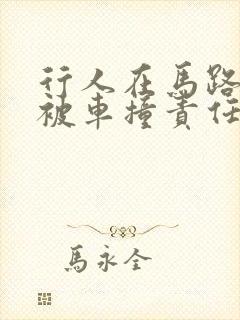 行人在馬路
被車撞責任
馬永全